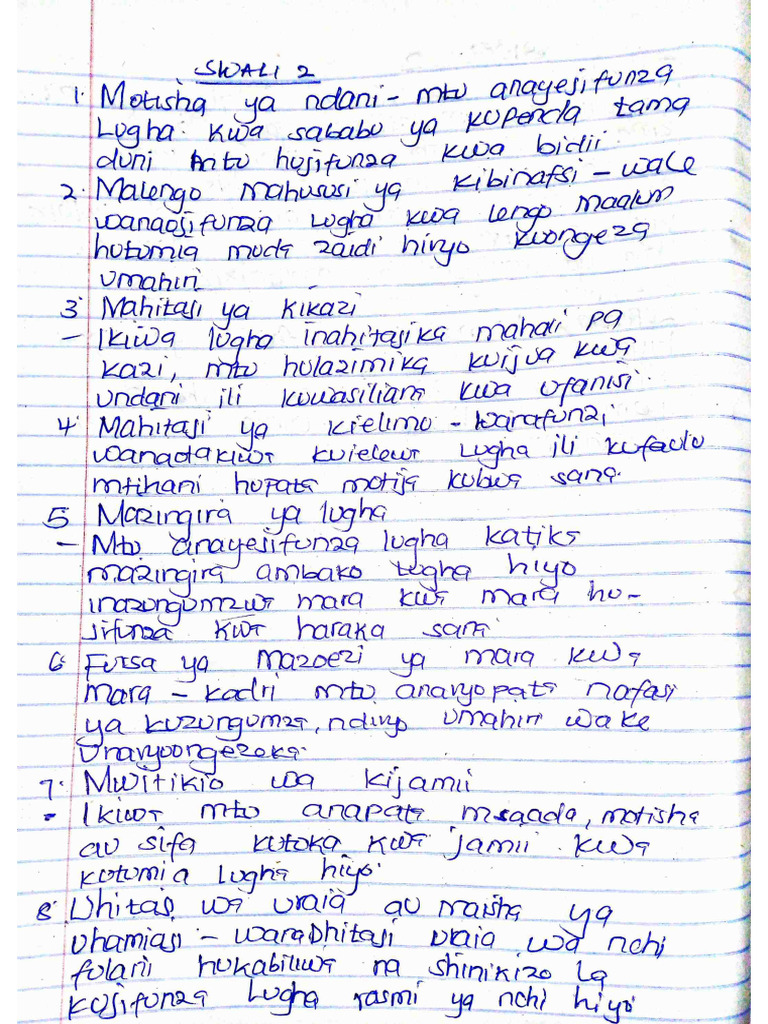 SWALI 2
1. Motisha ya ndani - mtu anayejifunza
Lugha kwa sababu ya kupenda tama
duni mtu hujifunza kwa bidii
2. Malengo mahususi ya kibinafsi - wale
wanaojifunza lugha kwa lengo maalum
hutumia muda zaidi hivyo kuongeza
umahiri
3 Mahitaji ya kikazi
- Ikiwa lugha inahitajika mahali pa
kazi, mtu hulazimika kuijua kwa
undani ili kuwasiliana kwa ufanisi.
4 Mahitaji ya kielimu - wanafunzi
wanaotakiwa kuielewa lugha ili kufaulu
mtihani hupata motija kubwa sana.
5 Mazingira ya lugha
- Mtu anayejifunza lugha katika
mazingira ambako lugha hiyo
inazungumzwa mara kwa mara hu-
jifunza kwa haraka sana
6 Fursa ya mazoezi ya mara kwa
mara - kadri mtu anavyopata nafasi
ya kuzungumza, ndivyo umahiri wake
unavyoongezeka.
7. Mwitikio wa kijamii
- Ikiwa mtu anapata msaada, motisha
au sifa kutoka kwa jamii kwa
kutumia lugha hiyo.
8. Uhitaji wa uraia au maisha ya
uhamiaji - uraia wa nchi
fulani hukabiliwa na shinikizo la
kujifunza lugha rasmi ya nchi hiyo